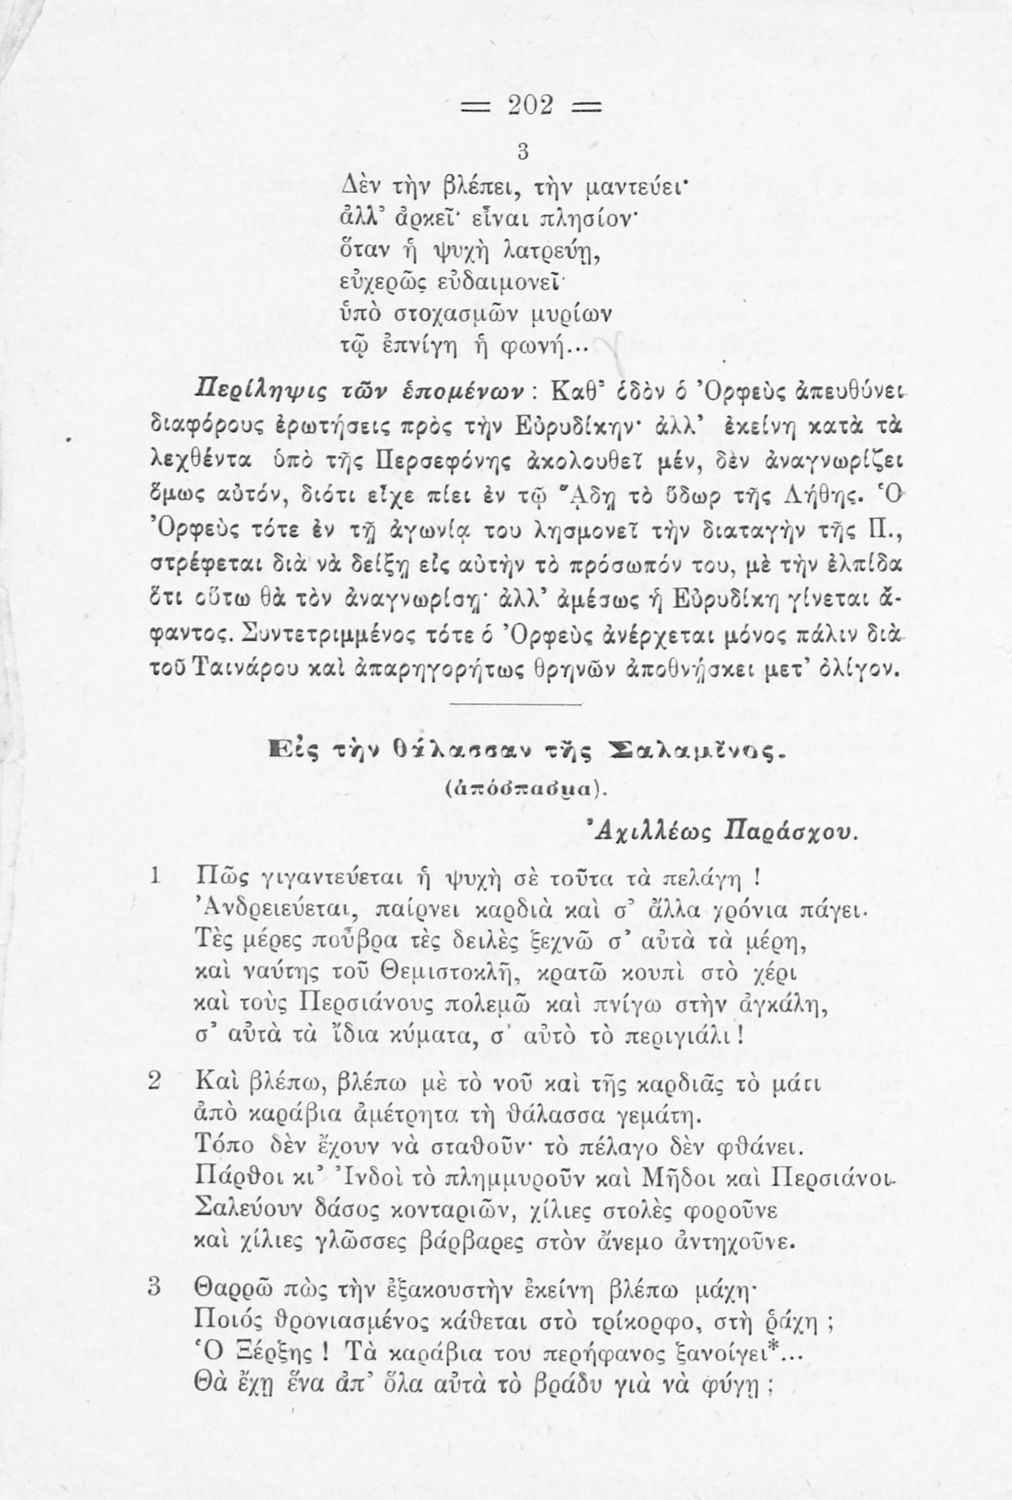 = 202 =
3
Δὲν τὴν βλέπει, τὴν μαντεύει·
ἀλλ' ἀρκεῖ· εἶναι πλησίον·
ὅταν ἡ ψυχὴ λατρεύῃ,
εὐχερῶς εὐδαιμονεῖ·
ὑπὸ στοχασμῶν μυρίων
τῷ ἐπνίγη ἡ φωνή...
Περίληψις τῶν ἑπομένων : Καθ' ὁδὸν ὁ Ὀρφεὺς ἀπευθύνει
διαφόρους ἐρωτήσεις πρὸς τὴν Εὐρυδίκην· ἀλλ' ἐκείνη κατὰ τὰ
λεχθέντα ὑπὸ τῆς Περσεφόνης ἀκολουθεῖ μέν, δὲν ἀναγνωρίζει
ὅμως αὐτόν, διότι εἶχε πίει ἐν τῷ ᾍδῃ τὸ ὕδωρ τῆς Λήθης. Ὁ
Ὀρφεὺς τότε ἐν τῇ ἀγωνίᾳ του λησμονεῖ τὴν διαταγὴν τῆς Π.,
στρέφεται διὰ νὰ δείξῃ εἰς αὐτὴν τὸ πρόσωπόν του, μὲ τὴν ἐλπίδα
ὅτι οὕτω θὰ τὸν ἀναγνωρίσῃ· ἀλλ' ἀμέσως ἡ Εὐρυδίκη γίνεται ἄ-
φαντος. Συντετριμμένος τότε ὁ Ὀρφεὺς ἀνέρχεται μόνος πάλιν διὰ
τοῦ Ταινάρου καὶ ἀπαρηγορήτως θρηνῶν ἀποθνήσκει μετ' ὀλίγον.
Εἰς τὴν θάλασσαν τῆς Σαλαμῖνος.
(ἀπόσπασμα).
Ἀχιλλέως Παράσχου.
1 Πῶς γιγαντεύεται ἡ ψυχὴ σὲ τοῦτα τὰ πελάγη !
Ἀνδρειεύεται, παίρνει καρδιὰ καὶ σ' ἄλλα χρόνια πάγει.
Τὲς μέρες ποὖβρα τὲς δειλὲς ξεχνῶ σ' αὐτὰ τὰ μέρη,
καὶ ναύτης τοῦ Θεμιστοκλῆ, κρατῶ κουπὶ στὸ χέρι
καὶ τοὺς Περσιάνους πολεμῶ καὶ πνίγω στὴν ἀγκάλη,
σ' αὐτὰ τὰ ἴδια κύματα, σ' αὐτὸ τὸ περιγιάλι !
2 Καὶ βλέπω, βλέπω μὲ τὸ νοῦ καὶ τῆς καρδιᾶς τὸ μάτι
ἀπὸ καράβια ἀμέτρητα τὴ θάλασσα γεμάτη.
Τόπο δὲν ἔχουν νὰ σταθοῦν· τὸ πέλαγο δὲν φθάνει.
Πάρθοι κι' Ἰνδοὶ τὸ πλημμυροῦν καὶ Μῆδοι καὶ Περσιάνοι.
Σαλεύουν δάσος κονταριῶν, χίλιες στολὲς φοροῦνε
καὶ χίλιες γλῶσσες βάρβαρες στὸν ἄνεμο ἀντηχοῦνε.
3 Θαρρῶ πὼς τὴν ἐξακουστὴν ἐκείνη βλέπω μάχη·
Ποιός θρονιασμένος κάθεται στὸ τρίκορφο, στὴ ῥάχη ;
Ὁ Ξέρξης ! Τὰ καράβια του περήφανος ξανοίγει*...
Θὰ ἔχῃ ἕνα ἀπ' ὅλα αὐτὰ τὸ βράδυ γιὰ νὰ φύγῃ ;